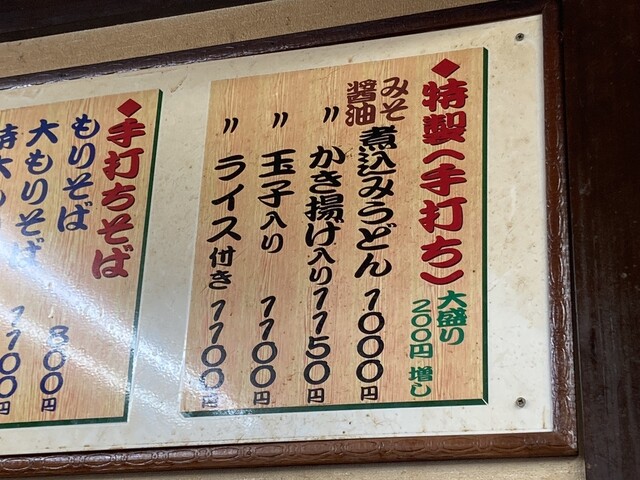 ◆特製(手打ち)
大盛り
200円増し
みそ
醤油
煮込みうどん 1000円
〃 かき揚げ入り 1150円
〃 玉子入り 1100円
〃 ライス付き 1100円
◆手打ちそば
もりそば 800円
大もりそば 1100円